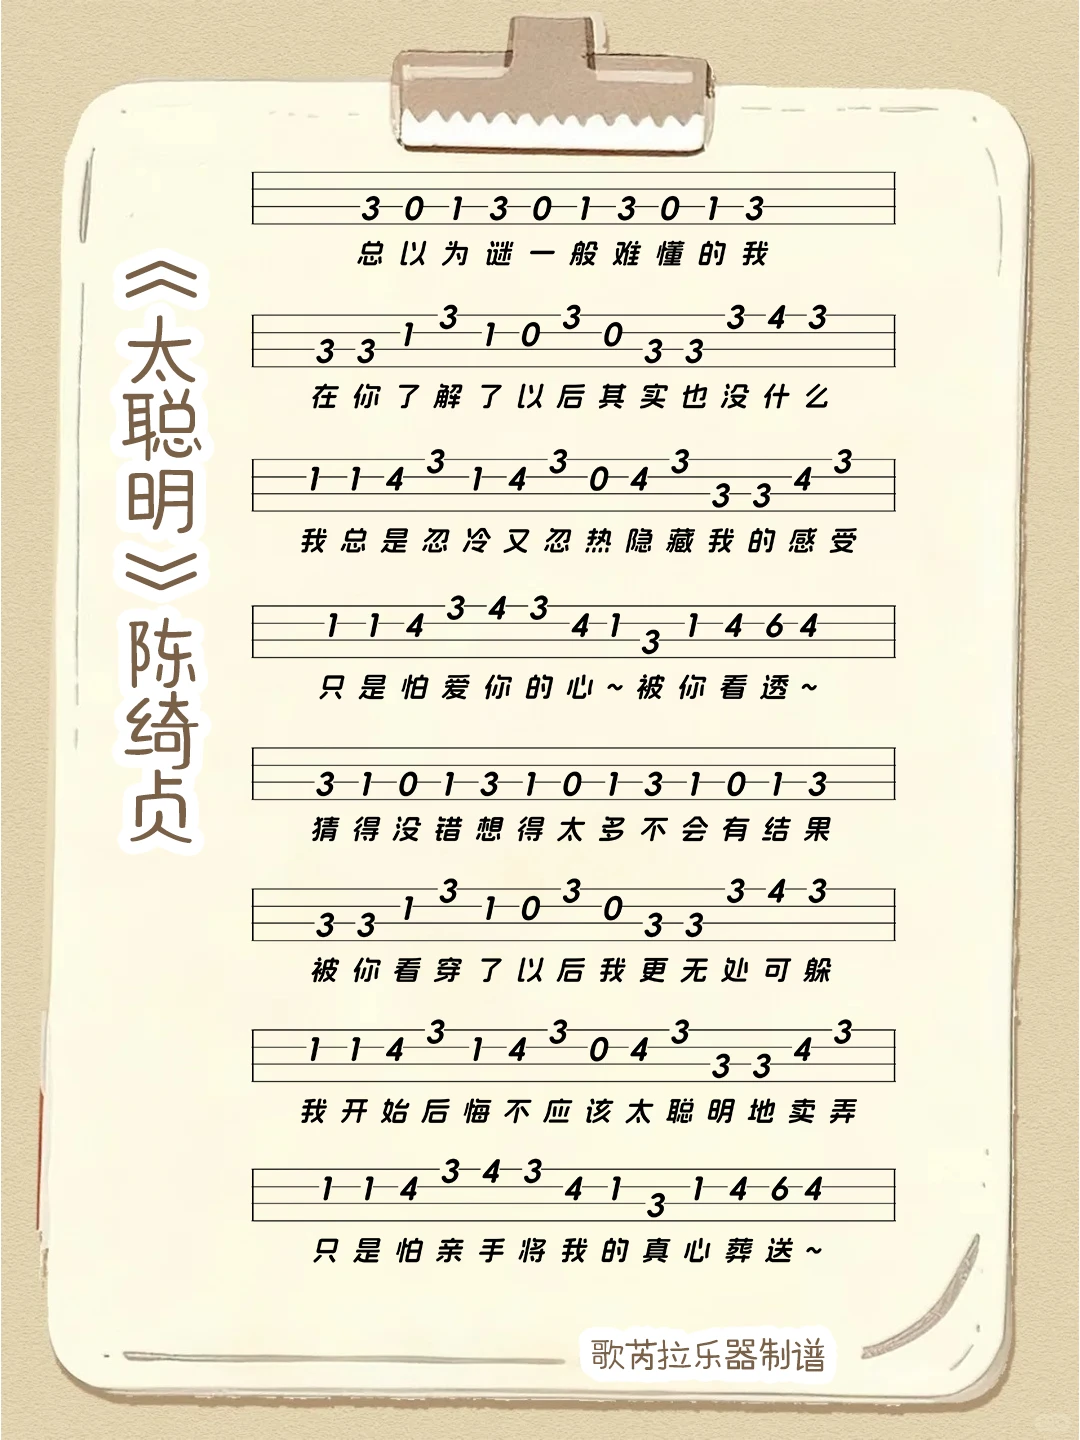 《太聪明》陈绮贞
3 0 1 3 0 1 3 0 1 3
总以为谜一般难懂的我
3 3 1 3 1 0 3 0 3 3 3 4 3
在你了解了以后其实也没什么
1 1 4 3 1 4 3 0 4 3 3 3 4 3
我总是忍冷又忍热隐藏我的感受
1 1 4 3 4 3 4 1 3 1 4 6 4
只是怕爱你的心~被你看透~
3 1 0 1 3 1 0 1 3 1 0 1 3
猜得没错想得太多不会有结果
3 3 1 3 1 0 3 0 3 3 3 4 3
被你看穿了以后我更无处可躲
1 1 4 3 1 4 3 0 4 3 3 3 4 3
我开始后悔不应该太聪明地卖弄
1 1 4 3 4 3 4 1 3 1 4 6 4
只是怕亲手将我的真心葬送~
歌芮拉乐器制谱